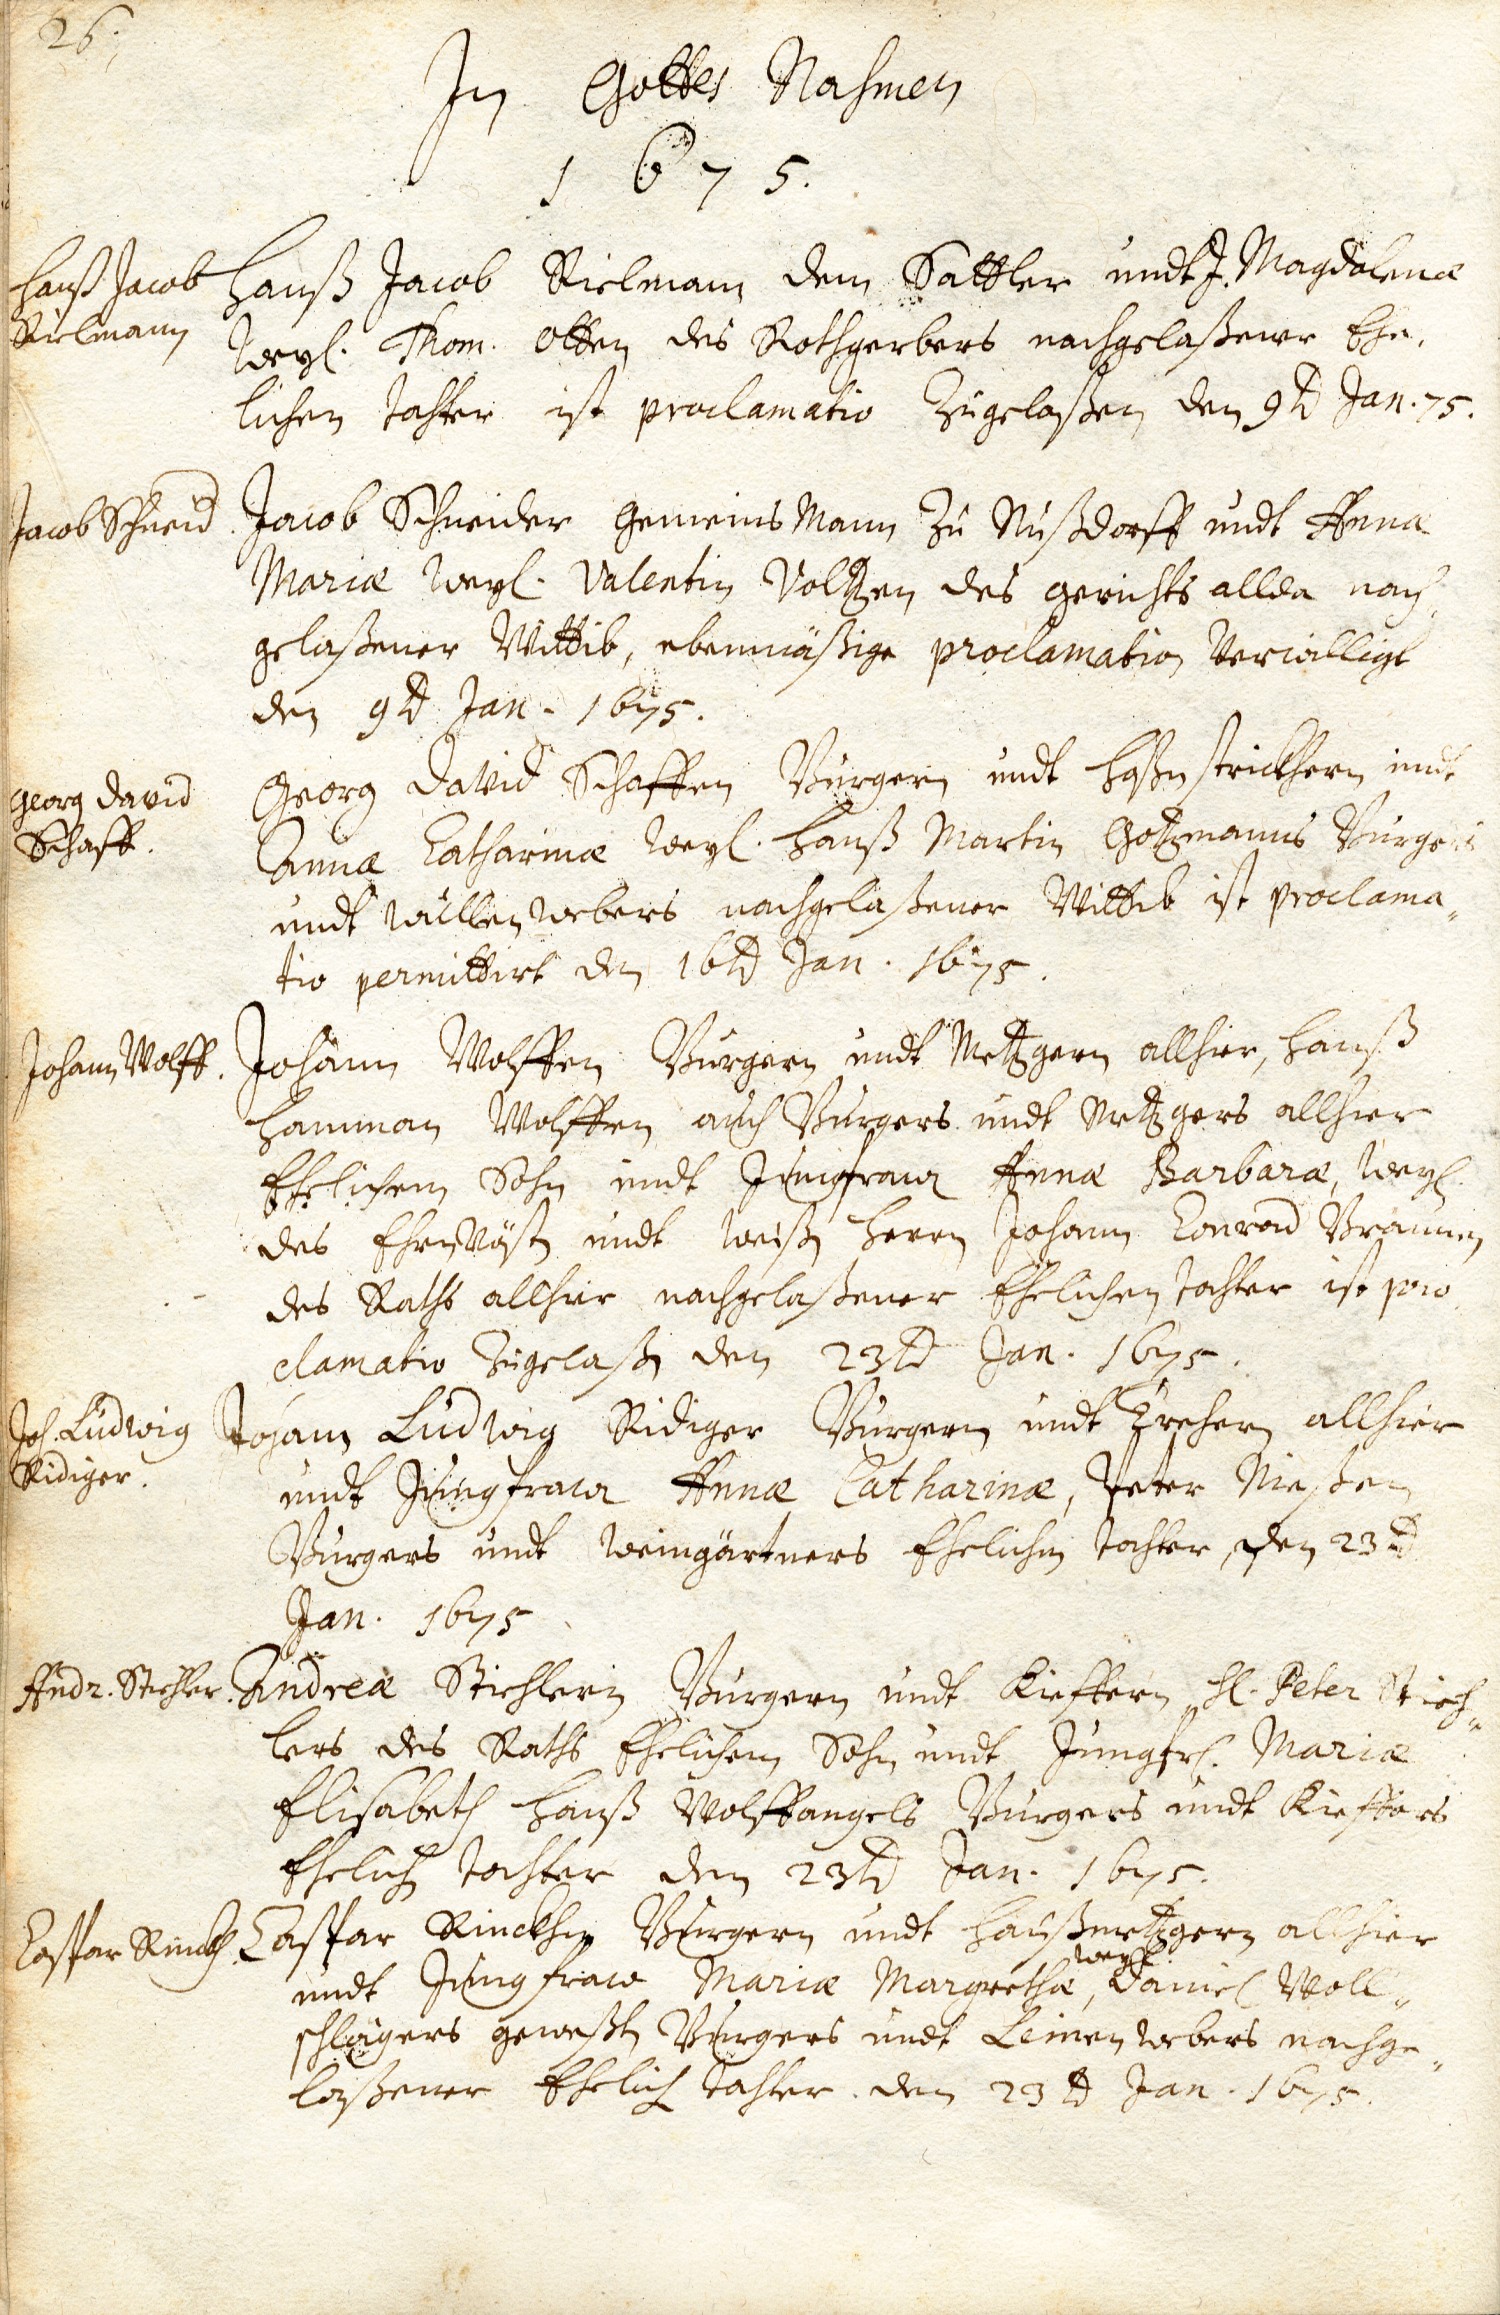 26.
In Gottes Nahmen
1675.
Hanß Jacob
Rielmann
Hanß Jacob Rielmann dem Sattler undt J. Magdalenæ
weyl. Thom. Otten des Rothgerbers nachgelaßener Ehe,
lichen Tochter ist proclamatio Zugelaßen den 9td Jan. 75.
Jacob Schneid.
Jacob Schneider Gemeins Mann Zu Nußdorff undt Annæ
Mariæ weyl. Valentin Voltzen des Gerichts allda nach,
gelaßener Wittib, ebenmäßige proclamation Verwilligt
den 9td Jan. 1675.
Georg David
Schaff.
Georg David Schaffen Burgern undt Hoßenstrickhern undt
Annæ Catharinæ weyl. Hanß Martin Gotzmanns Burgers
undt Wullen webers nachgelaßener Wittib ist proclama„
tio permittirt den 16td Jan. 1675.
Johann Wolff.
Johann Wolffen Burgern undt Metzgern allhier, Hanß
Hamman Wolffen auch Burgers undt Metzgers allhier
Ehelichem Sohn undt Jungfraw Annæ Barbaræ, weyl.
des Ehrnvöst undt weiß Herrn Johann Conrad Braunen
des Raths allhier nachgelaßener Ehelichen Tochter ist pro,
clamatio Zugelaßen den 23td Jan. 1675.
Joh. Ludwig
Ridiger.
Johann Ludwig Ridiger Burgern undt Drehern allhier
undt Jungfraw Annæ Catharinæ, Peter Nießen
Burgers undt Weingärtners Ehelichen Tochter, den 23td
Jan. 1675
Andr. Stichler.
Andreæ Stichlern Burgern undt Kieffern, H. Peter Stich„
lers des Raths Ehelichem Sohn undt Jungfr. Mariæ
Elisabeth Hanß Wolffangels Burgers undt Kieffers
Ehelich Tochter den 23td Jan. 1675.
Caspar Rinckh.
Caspar Rinckhen Burgern undt Haußmetzgern allhier
undt Jungfraw Mariæ Margrethæ, weyl. Daniel Woll„
schlägers geweßten Burgers undt Leinen webers nachge„
laßener Ehelich Tochter. den 23td Jan. 1675.